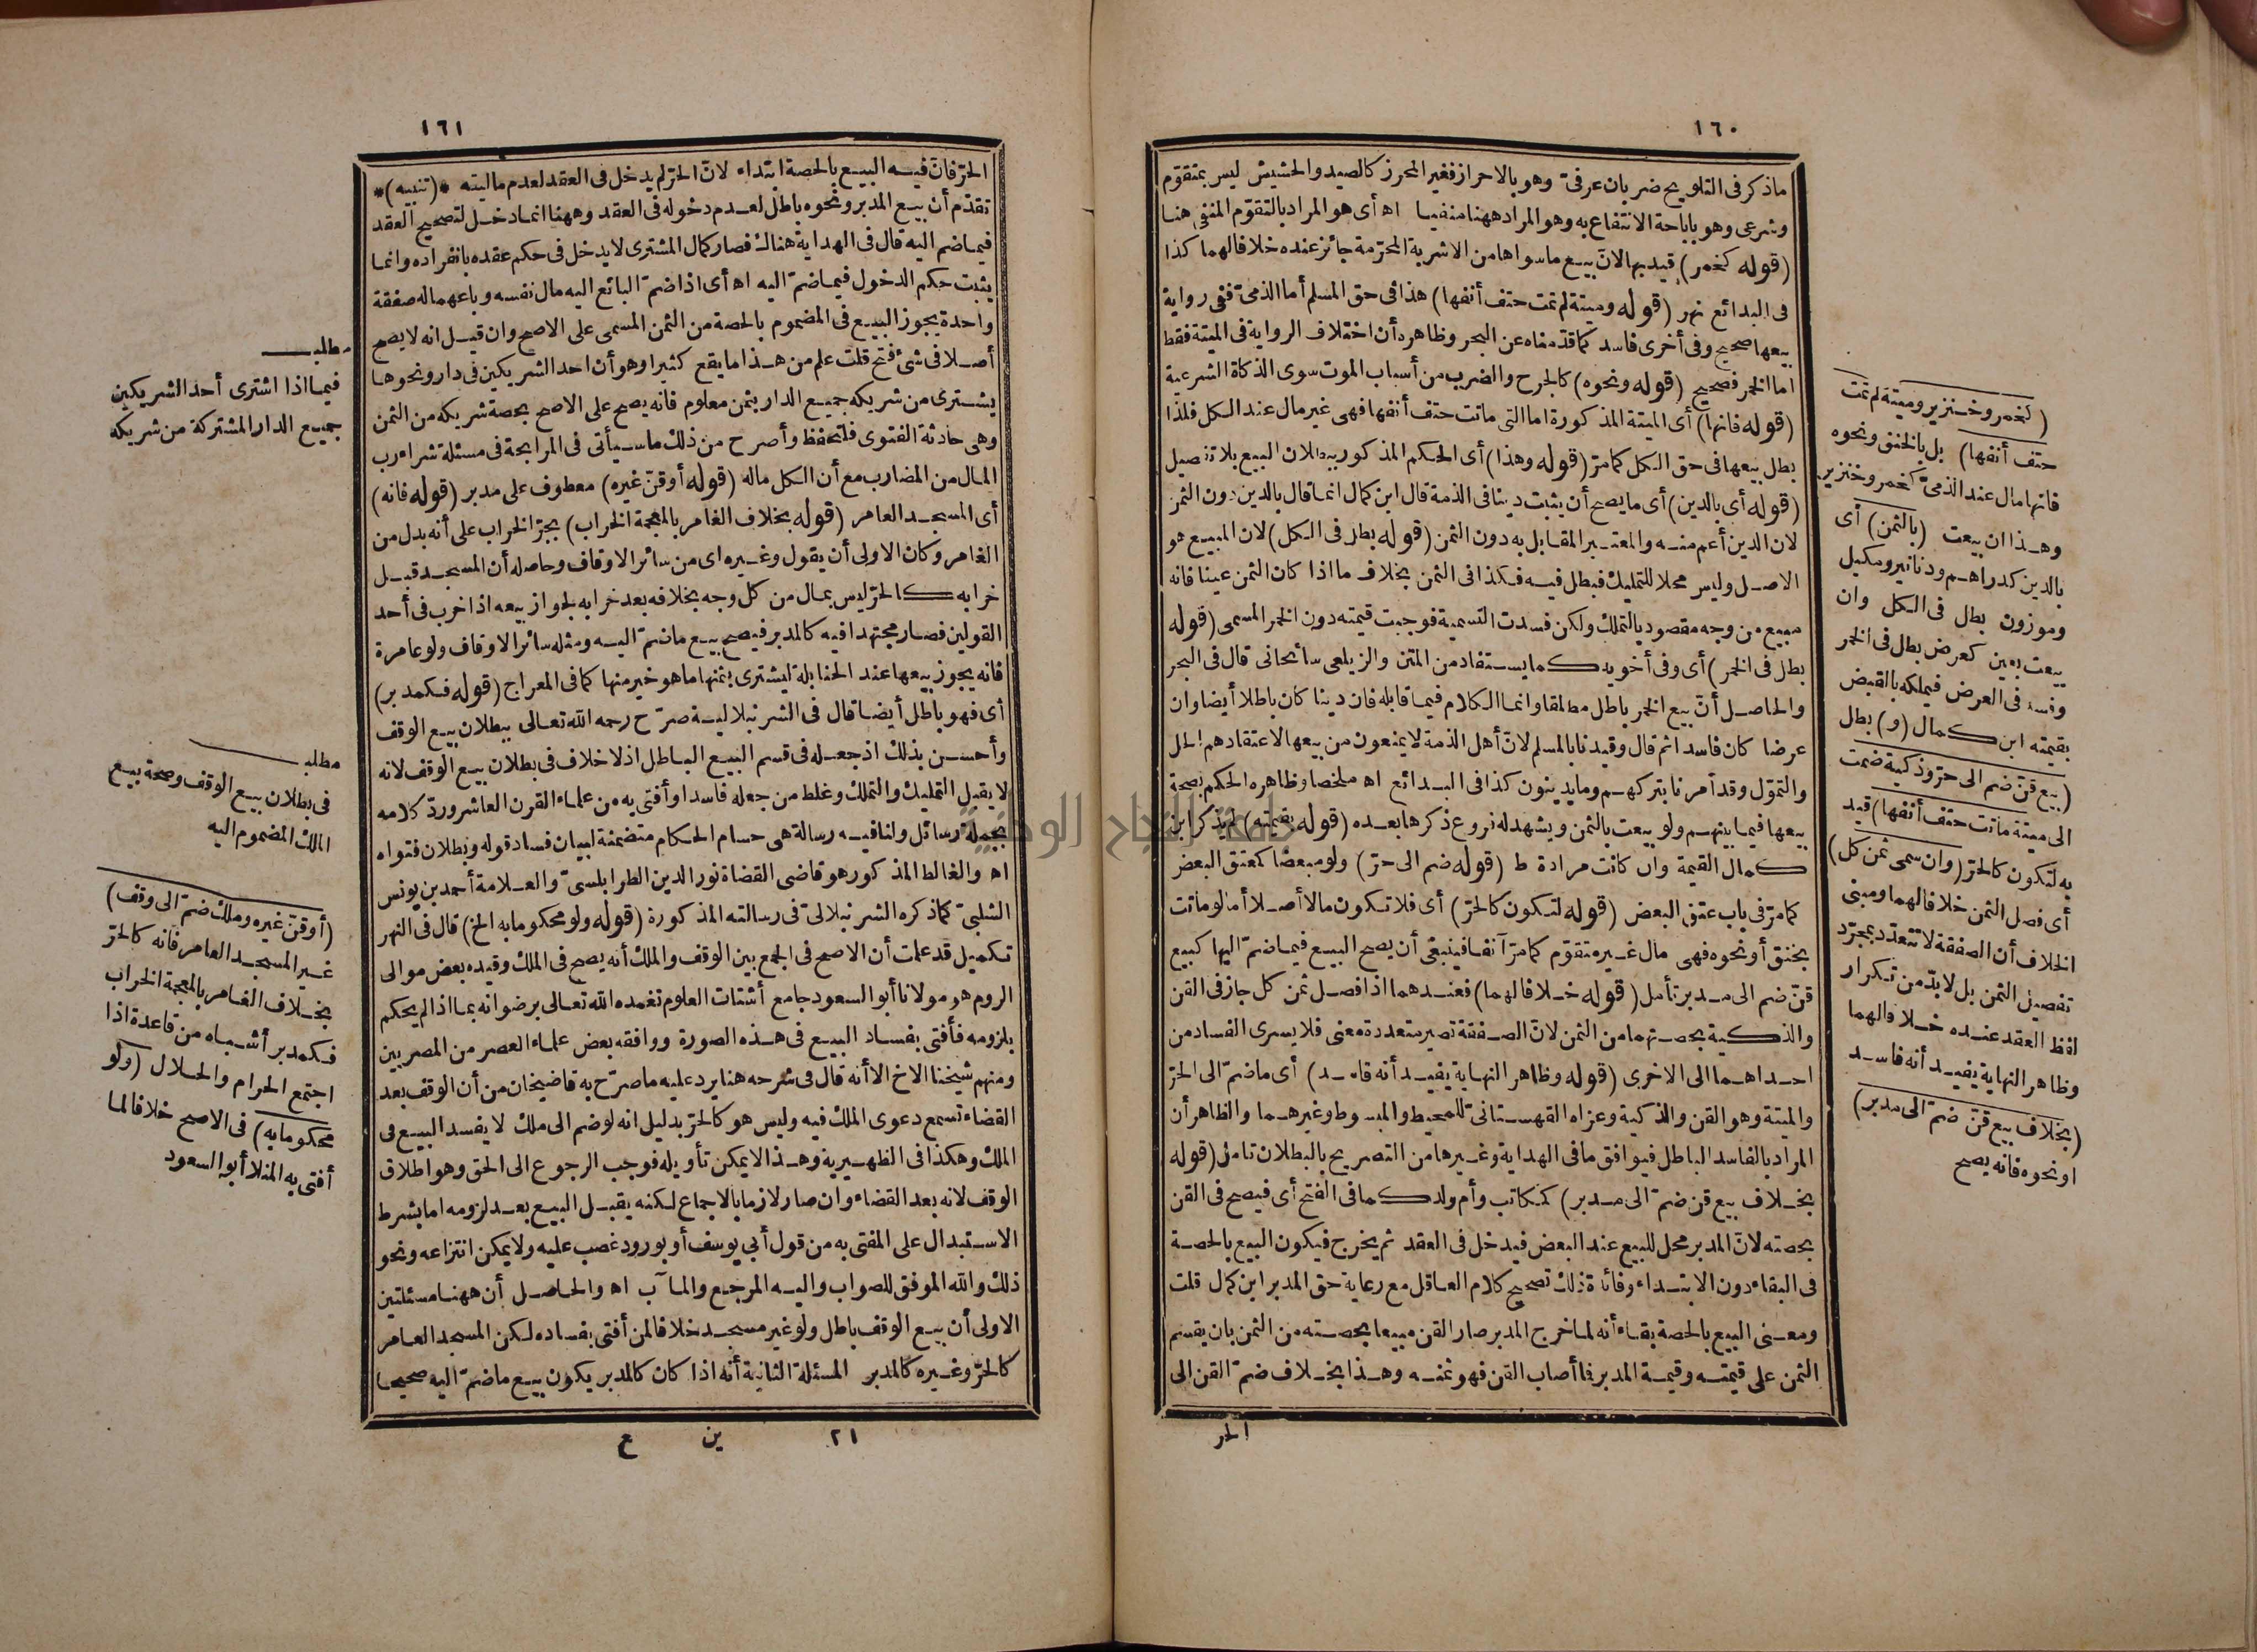 ١٦٠
ماذكر فى التلويح ضربان عرفىّ وهو بالاحراز فغير المحرز كالصيد والحشيش ليس بمتقوّم
وشرعى وهو باباحة الانتفاع به وهو المراد ههنا منفيا اه أى هو المراد بالتقوّم المنفى هنا
(قوله كخمر) قيد بها لانّ بيع ماسواها من الاشربة المحرّمة جائز عنده خلافا لهما كذا
فى البدائع نهر (قوله وميتة لم تمت حتف أنفها) هذا فى حق المسلم أما الذمىّ ففى رواية
بيعها صحيح وفى أخرى فاسد كما قدّمناه عن البحر وظاهره أن اختلاف الرواية فى الميتة فقط
اما الخمر فصحيح (قوله ونحوه) كالجرح والضرب من أسباب الموت سوى الذكاة الشرعية
(قوله فانها) أى الميتة المذكورة اما التى ماتت حتف أنفها فهى غير مال عند الكل فلذا
بطل بيعها فى حق الكل كمامرّ (قوله وهذا) أى الحكم المذكور ببطلان البيع بلا تفصيل
(قوله أى بالدين) أى مايصح أن يثبت دينا فى الذمة قال ابن كمال انما قال بالدين دون الثمن
لان الدين أعم منه والمعتبر المقابل به دون الثمن (قوله بطل فى الكل) لان المبيع هو
الاصل وليس محلا للتمليك فبطل فيه فكذا فى الثمن بخلاف مااذا كان الثمن عينا فانه
مبيع من وجه مقصود بالتملك ولكن فسدت التسمية فوجبت قيمته دون الخمر المسمى (قوله
بطل فى الخمر) أى وفى أخويه كما يستفاد من المتن والزيلعى سائحانى قال فى البحر
والحاصل أنّ بيع الخمر باطل مطلقا وانما الكلام فيما قابله فان دينا كان باطلا أيضا وان
عرضا كان فاسدا ثم قال وقيدنا بالمسلم لانّ أهل الذمة لا يمنعون من بيعها لاعتقادهم الحل
والتموّل وقد أمرنا بتركهم ومايدينون كذا فى البدائع اه ملخصا وظاهره الحكم بصحة
بيعها فيما بينهم ولو بيعت بالثمن ويشهد له فروع ذكرها بعده (قوله بقيمته) لم يذكر ابن
كمال القيمة وان كانت مرادة ط (قوله ضم الى حرّ) ولو مبعضا كمعتق البعض
كمامرّ فى باب عتق البعض (قوله لتكون كالحرّ) أى فلا تكون مالا أصلا أما لو ماتت
بخنق أو نحوه فهى مال غير متقوّم كمامرّ آنفا فينبغى أن يصح البيع فيما ضمّ اليها كبيع
قنّ ضم الى مدبر تأمل (قوله خلافا لهما) فعندهما اذا فصل ثمن كل جاز فى القن
والذكية بحصتهما من الثمن لانّ الصفقة تصير متعددة معنى فلا يسرى الفساد من
احداهما الى الاخرى (قوله وظاهر النهاية يفيد أنه فاسد) أى ماضمّ الى الحرّ
والميتة وهو القن والذكية وعزاه القهستانىّ للمحيط والمبسوط وغيرهما والظاهر أن
المراد بالفاسد الباطل فيوافق مافى الهداية وغيرها من التصريح بالبطلان تامل (قوله
بخلاف بيع قن ضمّ الى مدبر) كمكاتب وأم ولد كما فى الفتح أى فيصح فى القن
بحصته لانّ المدبر محل للبيع عند البعض فيدخل فى العقد ثم يخرج فيكون البيع بالحصة
فى البقاء دون الابتداء وفائدة ذلك تصحيح كلام العاقل مع رعاية حق المدبر ابن كمال قلت
ومعنى البيع بالحصة بقاء أنه لما خرج المدبر صار القن مبيعا بحصته من الثمن بان يقسم
الثمن على قيمته وقيمة المدبر فما أصاب القن فهو ثمنه وهذا بخلاف ضمّ القن الى
الحر
(كخمر وخنزير وميتة لم تمت
حتف أنفها) بل بالخنق ونحوه
فانها مال عند الذمىّ كخمر وخنزير
وهذا ان بيعت (بالثمن) أى
بالدين كدراهم ودنانير ومكيل
وموزون بطل فى الكل وان
بيعت بعين كعرض بطل فى الخمر
وفسد فى العرض فيملكه بالقبض
بقيمته ابن كمال (و) بطل
(بيع قنّ ضم الى حرّ وذكية ضمت
الى ميتة ماتت حتف أنفها) قيد
به لتكون كالحرّ (وان سمى ثمن كل)
أى فصل الثمن خلافا لهما ومبنى
الخلاف أن الصفقة لا تتعدّد بمجرّد
تفصيل الثمن بل لابدّ من تكرار
لفظ العقد عنده خلافا لهما
وظاهر النهاية يفيد أنه فاسد
(بخلاف بيع قنّ ضمّ الى مدبر)
او نحوه فانه يصح
١٦١
الحرّ فانّ فيه البيع بالحصة ابتداء لانّ الحرّ لم يدخل فى العقد لعدم ماليته *(تنبيه)*
تقدّم أن بيع المدبر ونحوه باطل لعدم دخوله فى العقد وههنا انما دخل لتصحيح العقد
فيما ضم اليه قال فى الهداية هنالك فصار كمال المشترى لا يدخل فى حكم عقده بانفراده وانما
يثبت حكم الدخول فيما ضمّ اليه اه أى اذا ضمّ البائع اليه مال نفسه وباعهما له صفقة
واحدة يجوز البيع فى المضموم بالحصة من الثمن المسمى على الاصح وان قيل انه لا يصح
أصلا فى شئ فتح قلت علم من هذا مايقع كثيرا وهو أن احد الشريكين فى دار ونحوها
يشترى من شريكه جميع الدار بثمن معلوم فانه يصح على الاصح بحصة شريكه من الثمن
وهى حادثة الفتوى فلتحفظ وأصرح من ذلك ماسيأتى فى المرابحة فى مسئلة شراء رب
المال من المضارب مع أن الكل ماله (قوله أو قنّ غيره) معطوف على مدبر (قوله فانه)
أى المسجد العامر (قوله بخلاف الغامر بالمعجمة الخراب) بجرّ الخراب على أنه بدل من
الغامر وكان الاولى أن يقول وغيره اى من سائر الاوقاف وحاصله أن المسجد قبل
خرابه كالحرّ ليس بمال من كل وجه بخلافه بعد خرابه لجواز بيعه اذا خرب فى أحد
القولين فصار مجتهدا فيه كالمدبر فيصح بيع ماضمّ اليه ومثله سائر الاوقاف ولو عامرة
فانه يجوز بيعها عند الحنابلة ليشترى بثمنها ماهو خير منها كما فى المعراج (قوله فكمدبر)
أى فهو باطل أيضا قال فى الشرنبلالية صرّح رحمه الله تعالى ببطلان بيع الوقف
وأحسن بذلك اذ جعله فى قسم البيع الباطل اذ لا خلاف فى بطلان بيع الوقف لانه
لا يقبل التمليك والتملك وغلط من جعله فاسدا وأفتى به من علماء القرن العاشر وردّ كلامه
بجملة رسائل ولنا فيه رسالة هى حسام الحكام متضمنة لبيان فساد قوله وبطلان فتواه
اه والغالط المذكور هو قاضى القضاة نور الدين الطرابلسىّ والعلامة أحمد بن يونس
الشلبىّ كما ذكره الشرنبلالىّ فى رسالته المذكورة (قوله ولو محكوما به الخ) قال فى النهر
تكميل قد علمت أن الاصح فى الجمع بين الوقف والملك أنه يصح فى الملك وقيده بعض موالى
الروم هو مولانا أبو السعود جامع أشتات العلوم تغمده الله تعالى برضوانه بما اذا لم يحكم
بلزومه فأفتى بفساد البيع فى هذه الصورة ووافقه بعض علماء العصر من المصريين
ومنهم شيخنا الاخ الا أنه قال فى شرحه هنا يرد عليه ماصرّح به قاضيخان من أن الوقف بعد
القضاء تسمع دعوى الملك فيه وليس هو كالحرّ بدليل انه لو ضم الى ملك لا يفسد البيع فى
الملك وهكذا فى الظهيرية وهذا لا يمكن تأويله فوجب الرجوع الى الحق وهو اطلاق
الوقف لانه بعد القضاء وان صار لازما بالاجماع لكنه يقبل البيع بعد لزومه اما بشرط
الاستبدال على المفتى به من قول أبي يوسف أو بورود غصب عليه ولا يمكن انتزاعه ونحو
ذلك والله الموفق للصواب واليه المرجع والمآب اه والحاصل أن ههنا مسئلتين
الاولى أن بيع الوقف باطل ولو غير مسجد خلافا لمن أفتى بفساده لكن المسجد العامر
كالحرّ وغيره كالمدبر المسئلة الثانية أنه اذا كان كالمدبر يكون بيع ماضمّ اليه صحيحا
٢١ ين ع
مطلب
فيما اذا اشترى أحد الشريكين
جميع الدار المشتركة من شريكه
مطلب
فى بطلان بيع الوقف وصحة بيع
الملك المضموم اليه
(أو قنّ غيره وملك ضمّ الى وقف)
غير المسجد العامر فانه كالحرّ
بخلاف الغامر بالمعجمة الخراب
فكمدبر أشباه من قاعدة اذا
اجتمع الحرام والحلال (ولو
محكوما به) فى الاصح خلافا لما
أفتى به المنلا أبو السعود
جامعة النجاح الوطنية